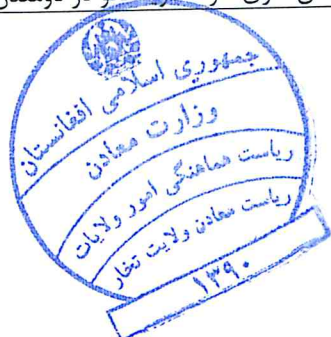 جمهوری اسلامی افغانستان
وزارت معادن
ریاست هماهنگی امور ولایات
ریاست معادن ولایت تخار
۱۳۹۰